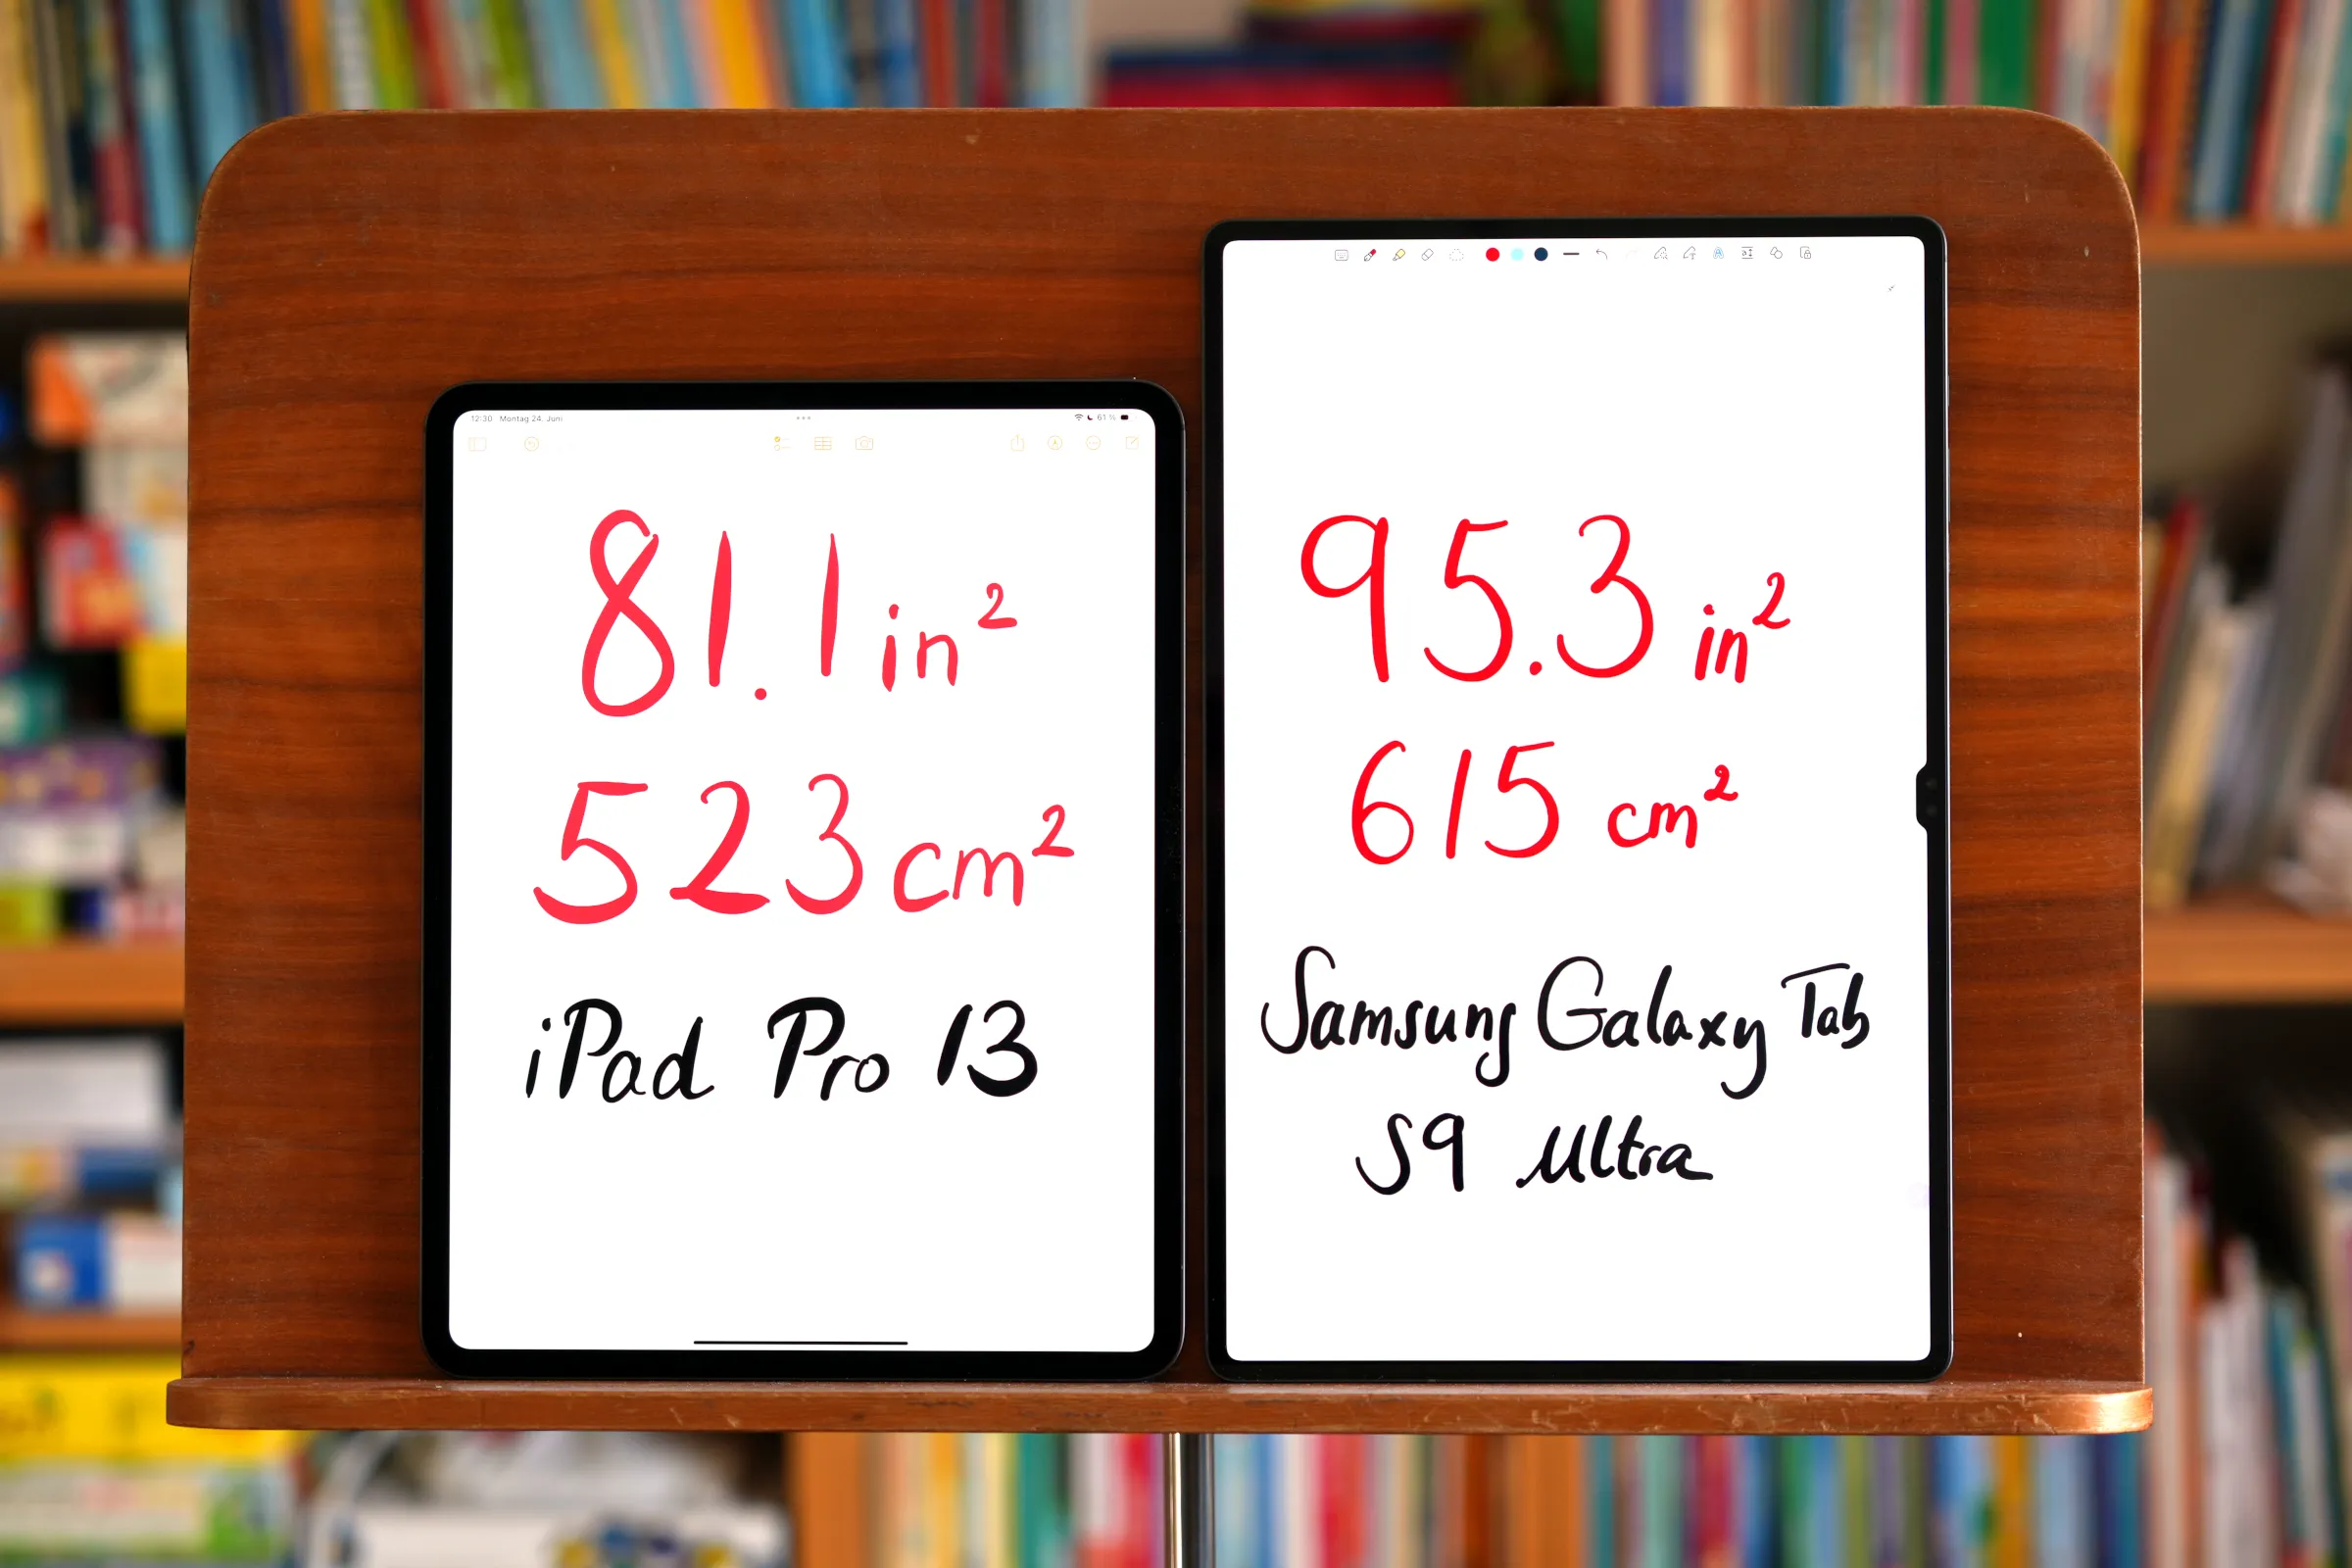 12:30 Montag 24. Juni
61 %
81.1 in²
523 cm²
iPad Pro 13
95.3 in²
615 cm²
Samsung Galaxy Tab
S9 Ultra